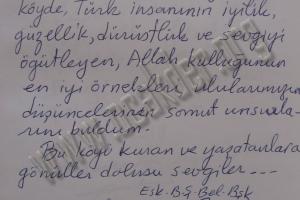 köyde, Türk insanının iyilik,
güzellik, dürüstlük ve sevgiyi
öğütleyen, Allah kulluğunun
en iyi örnekleri, ulularımızın
düşüncelerinin somut unsurla-
rını buldum.
Bu köyü kuran ve yaşatanlara
gönüller dolusu sevgiler ---
Esk. BŞ. Bel. Bşk